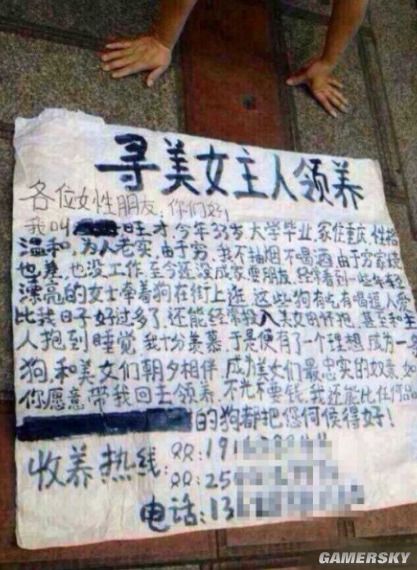 寻美女主人领养
各位女性朋友,你们好!
我叫 旺才今年33岁大学毕业,家住重庆,性格
温和,为人老实,由于穷,我不抽烟不喝酒,由于家穷
也 ,也没工作,至今还没成家,要朋友,经常看到一些年轻
漂亮的女士牵着狗在街上逛,这些狗有吃有喝逗人
比我日子好过多了,还能经常投入美女的怀抱,甚至和主
人抱到睡觉,我十分羡慕,于是便有了一个理想,成为一条
狗,和美女们朝夕相伴,成为美女们最忠实的奴隶,如
你愿意带我回去领养,不光不要钱,我还能比任何
的狗都把您伺候得好!
收养热线: QQ:191
QQ:25
电话:13
GAMERSKY